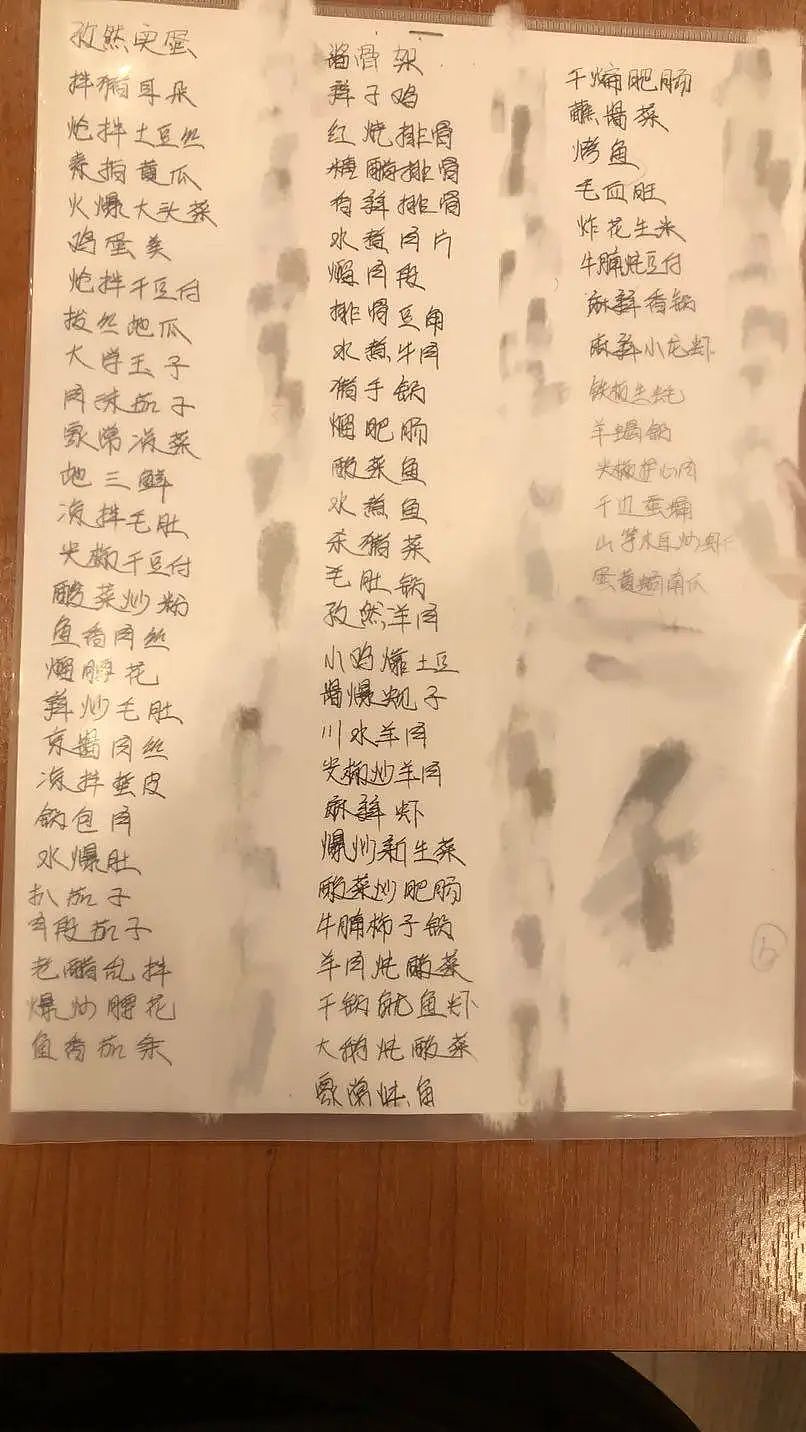 孜然实蛋
拌猪耳朵
炝拌土豆丝
素拍黄瓜
火爆大头菜
鸡蛋类
炝拌干豆付
拔丝地瓜
大学玉子
肉沫茄子
家常凉菜
地三鲜
凉拌毛肚
尖椒干豆付
酸菜炒粉
鱼香肉丝
熘腰花
辣炒毛肚
京酱肉丝
凉拌蜇皮
锅包肉
水爆肚
扒茄子
肉段茄子
老醋乱拌
爆炒腰花
鱼香茄条
酱骨架
辣子鸡
红烧排骨
糖醋排骨
香辣排骨
水煮肉片
熘肉段
排骨豆角
水煮牛肉
猪手锅
熘肥肠
酸菜鱼
水煮鱼
杀猪菜
毛肚锅
孜然羊肉
小鸡炖土豆
酱爆蚬子
川水羊肉
尖椒炒羊肉
麻辣虾
爆炒新生菜
酸菜炒肥肠
牛腩柿子锅
羊肉炖酸菜
干锅鱿鱼虾
大鹅炖酸菜
家常炖鱼
干煸肥肠
蘸酱菜
烤鱼
毛血旺
炸花生米
牛腩炖豆付
麻辣香锅
麻辣小龙虾
铁板生蚝
羊蝎锅
尖椒护心肉
干边蚕蛹
山芋木耳炒虾仁
蛋黄焗南瓜
6